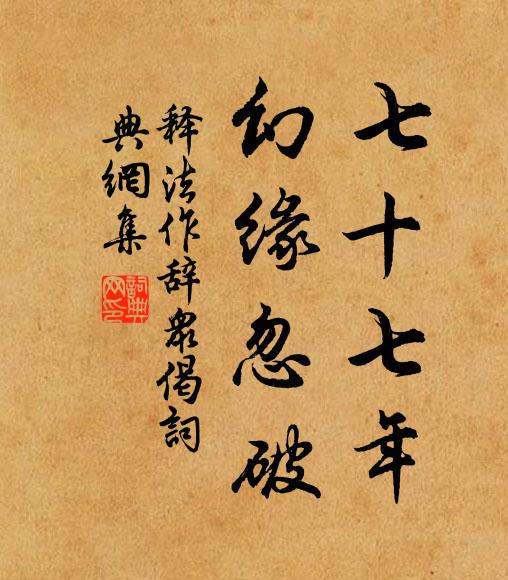 七十七年
幻缘忽破
释法作辞众偈词
典网集
词典
网印